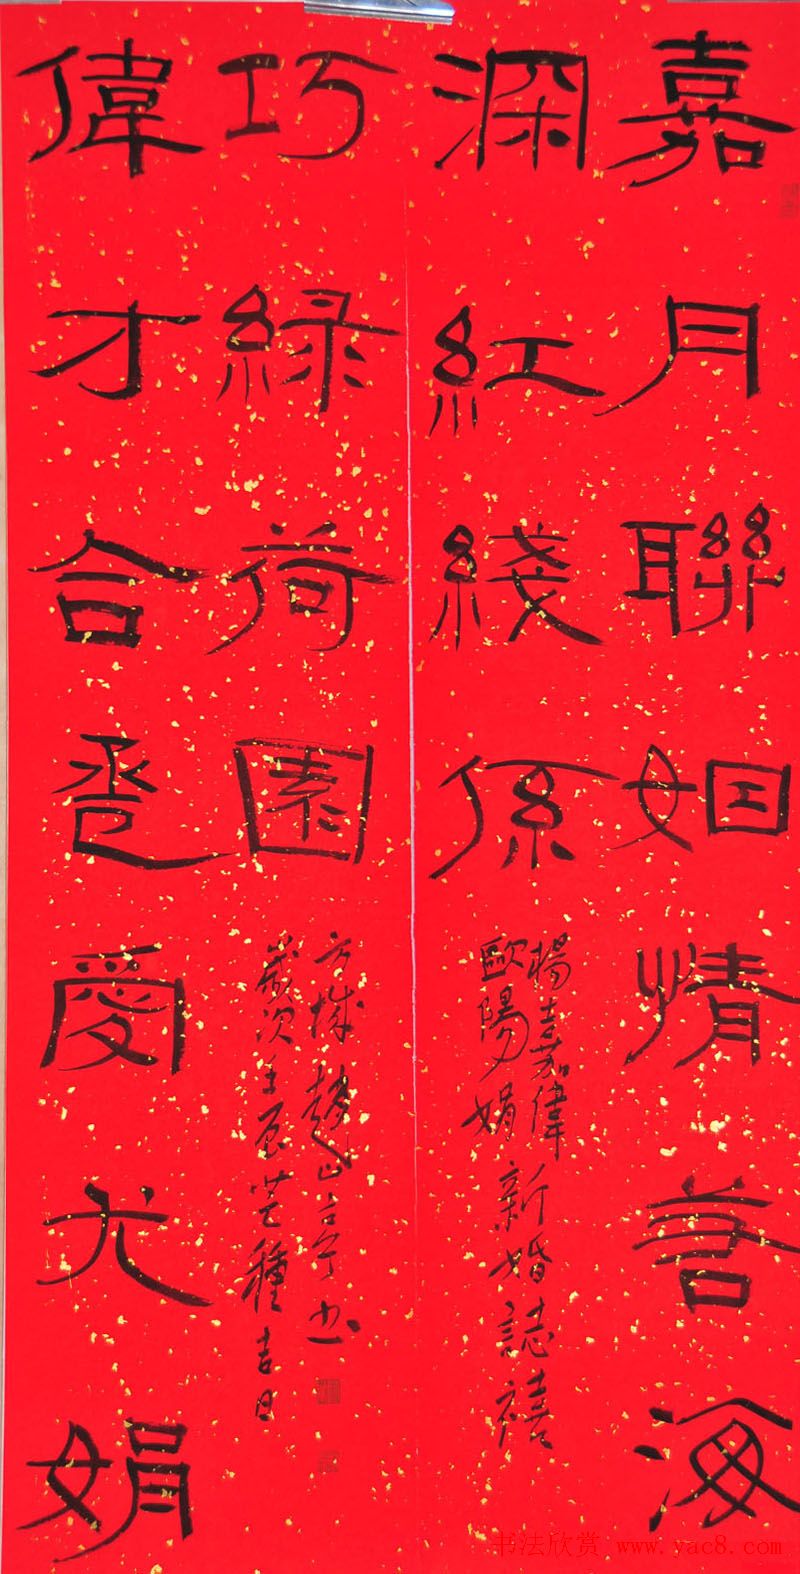 嘉月聯姻情若海
深紅綫係
楊嘉偉
歐陽娟 新婚誌禧
偉才合卺愛尤娟
巧緑荷園
方城趙山亭書
歲次壬辰芒種吉日
书法欣赏 www.yac8.com